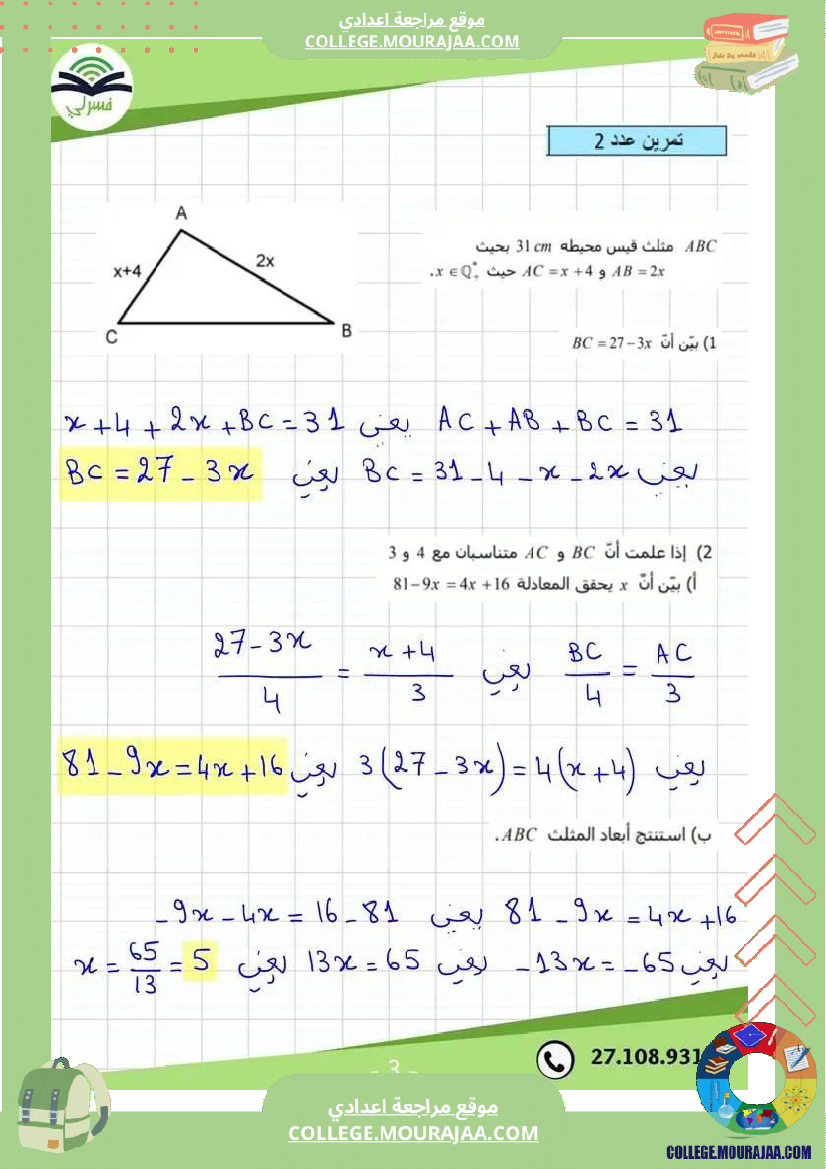 موقع مراجعة اعدادي
COLLEGE.MOURAJAA.COM
فسرلي
تمرين عدد 2
ABC مثلث قيس محيطه 31 cm بحيث
AB = 2x و AC = x + 4 حيث x ∈ ℚ*₊.
A
x+4
2x
C
B
1) بيّن أنّ BC = 27 − 3x
AC + AB + BC = 31 يعني x + 4 + 2x + BC = 31
يعني BC = 31 - 4 - x - 2x يعني BC = 27 - 3x
2) إذا علمت أنّ BC و AC متناسبان مع 4 و 3
أ) بيّن أنّ x يحقق المعادلة 81 − 9x = 4x + 16
BC/4 = AC/3 يعني (27 - 3x)/4 = (x + 4)/3
يعني 3(27 - 3x) = 4(x + 4) يعني 81 - 9x = 4x + 16
ب) استنتج أبعاد المثلث ABC.
81 - 9x = 4x + 16 يعني -9x - 4x = 16 - 81
يعني -13x = -65 يعني 13x = 65 يعني x = 65/13 = 5
27.108.931
- 3 -
موقع مراجعة اعدادي
COLLEGE.MOURAJAA.COM
COLLEGE.MOURAJAA.COM